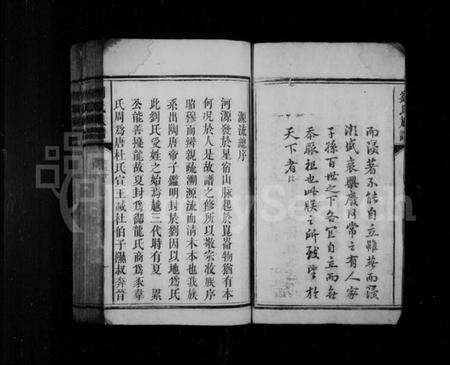 而復著不能自立雖替而復
漸盛衰興廢何常之有人家
子孫百世之下各宜自立而毋
忝厥祖也此朕之所致望於
天下者
源流總序
河源發於星宿山脉起於崑崙物猶有本
何况於人是故譜之修所以敬宗收族序
昭穆而辨親疏溯源流而清木本也我族
系出陶唐帝子鑑明封於劉因以地爲氏
此劉氏受姓之始爲越三代時有夏 累
丕能善擾龍故夏封爲御龍氏商爲豕韋
氏周爲唐杜氏宣王滅杜伯子隰叔奔晉